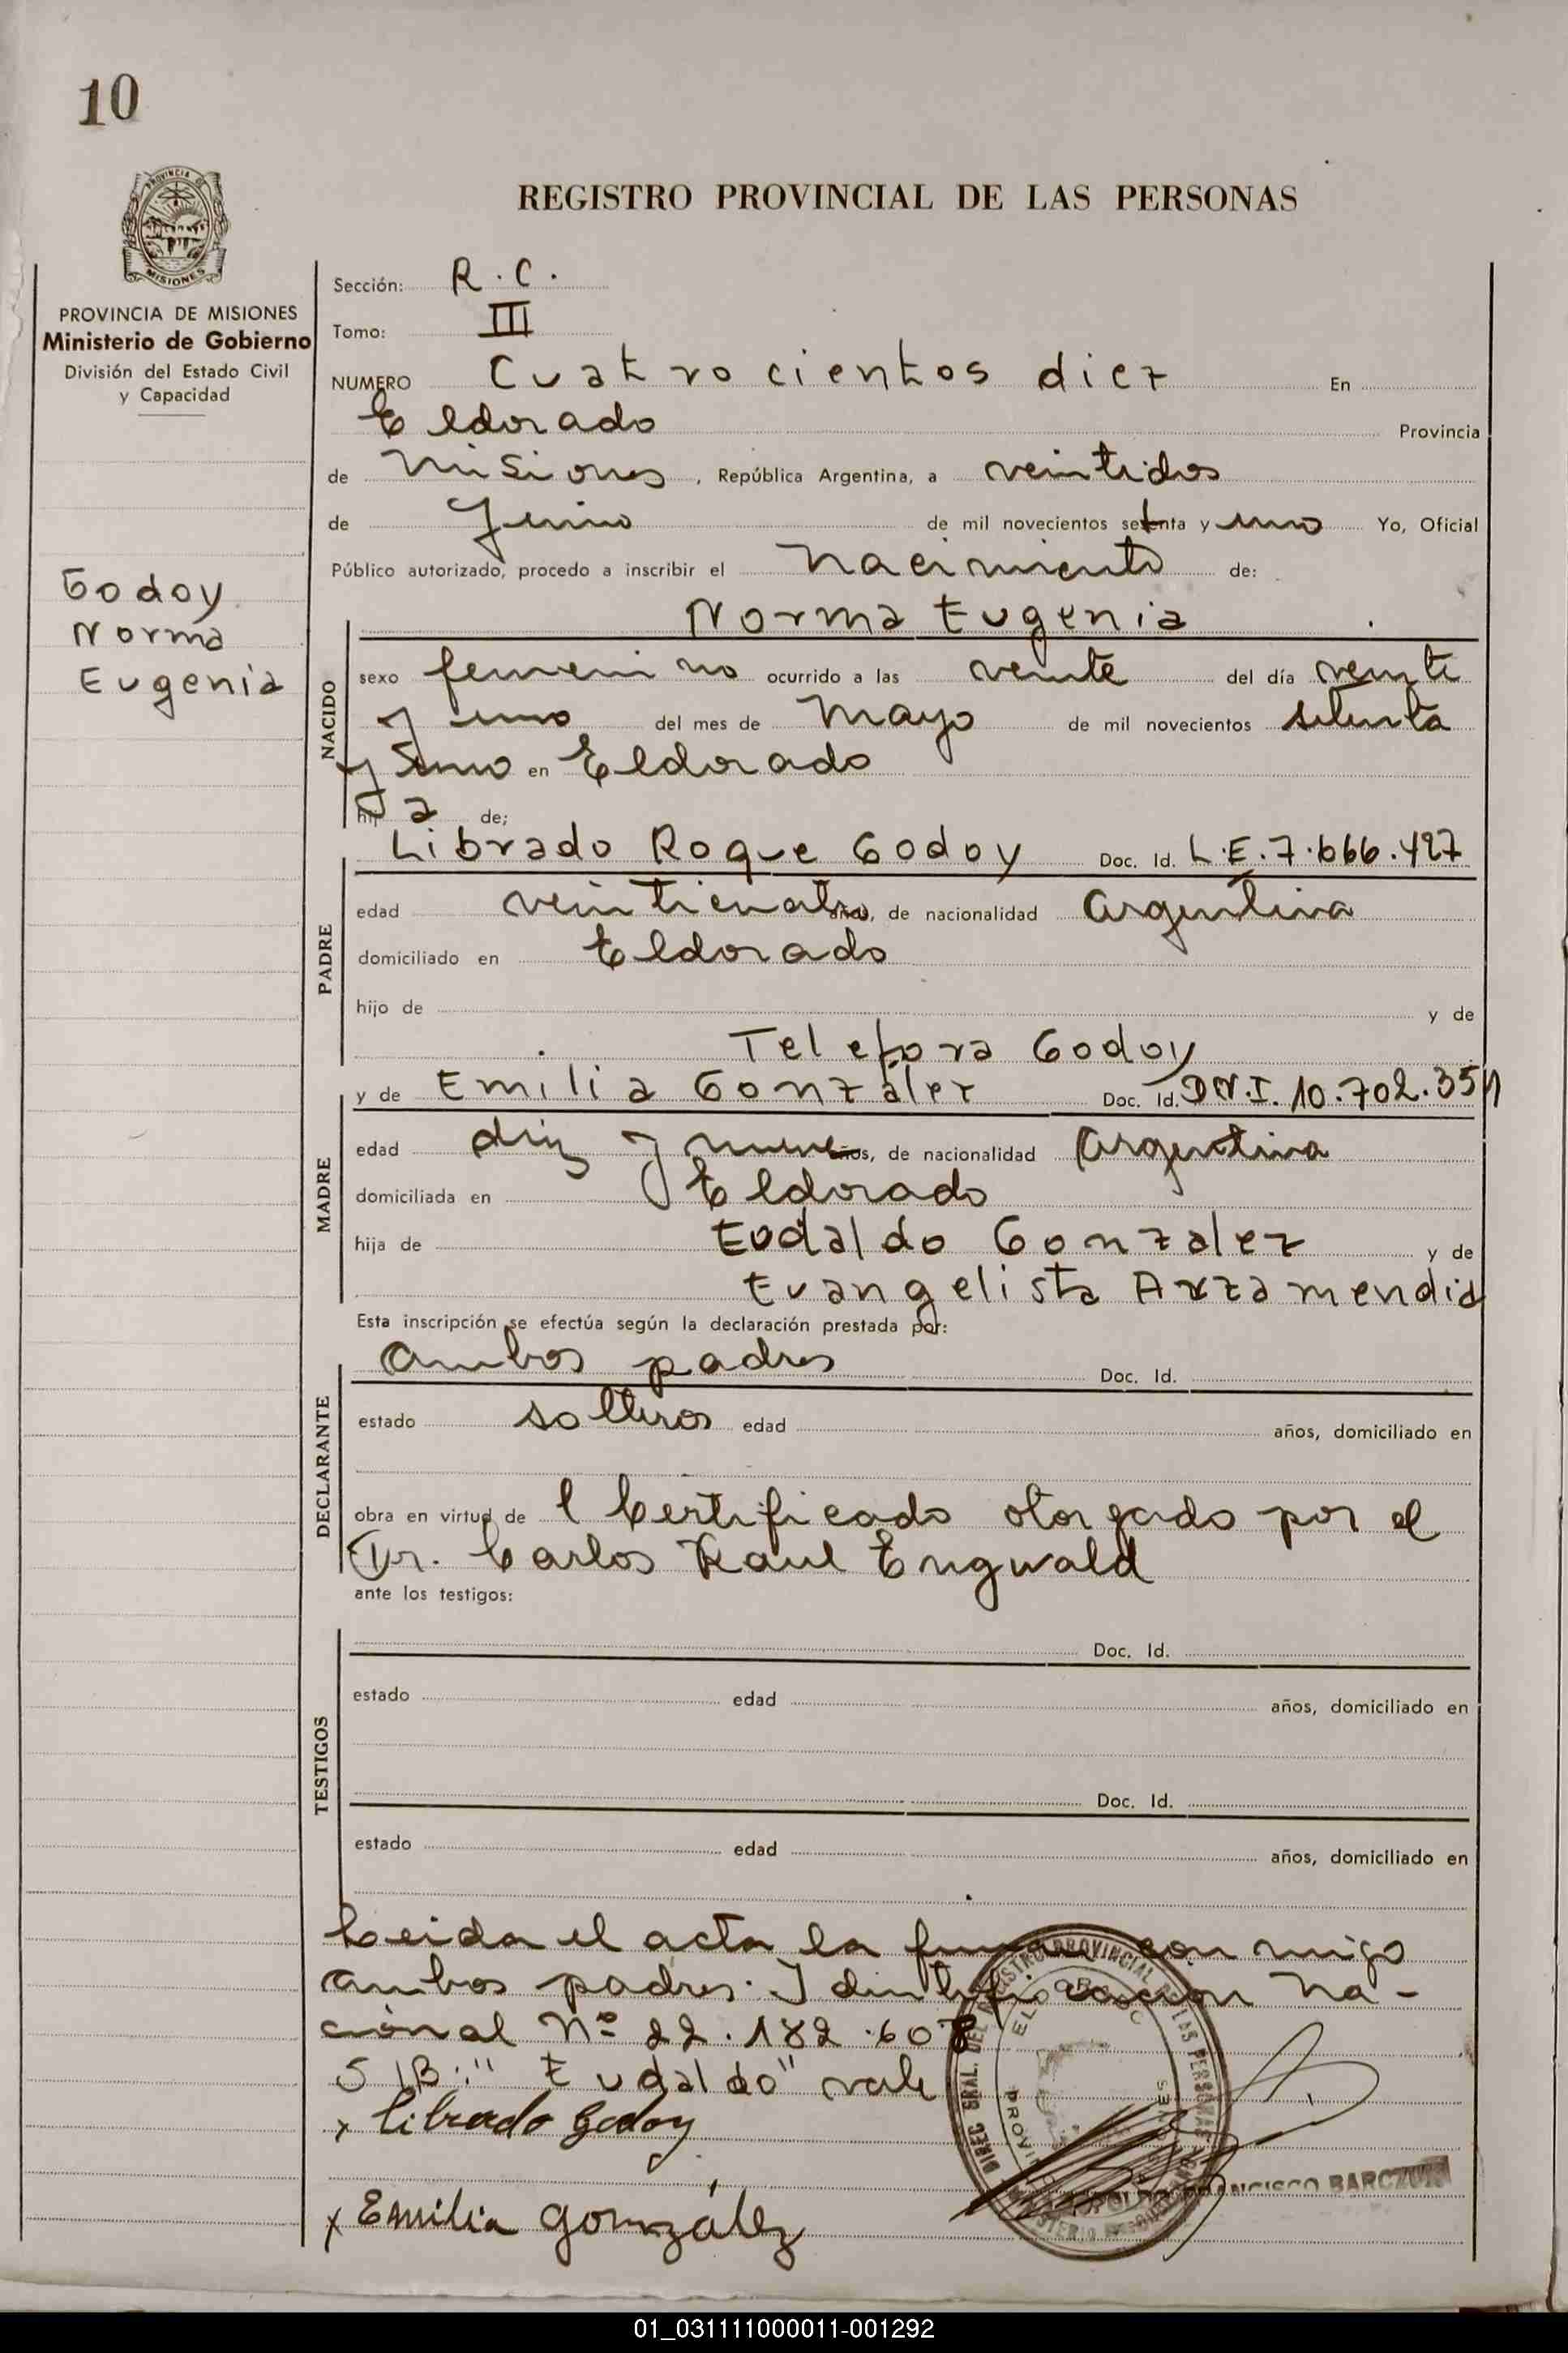 10
PROVINCIA DE
MISIONES
REGISTRO PROVINCIAL DE LAS PERSONAS
PROVINCIA DE MISIONES
Ministerio de Gobierno
División del Estado Civil
y Capacidad
Godoy
Norma
Eugenia
Sección: R. C.
Tomo: III
NUMERO Cuatrocientos diez En
Eldorado Provincia
de Misiones, República Argentina, a veintidos
de Junio de mil novecientos setenta y uno Yo, Oficial
Público autorizado, procedo a inscribir el nacimiento de:
Norma Eugenia
NACIDO
sexo femenino ocurrido a las veinte del día veinti
y uno del mes de Mayo de mil novecientos setenta
y uno en Eldorado
hija de;
Librado Roque Godoy Doc. Id. L.E. 7.666.427
PADRE
edad veinticuatro años, de nacionalidad Argentina
domiciliado en Eldorado
hijo de y de
Telefora Godoy
y de Emilia González Doc. Id. D.N.I. 10.702.354
MADRE
edad diez y nueve años, de nacionalidad Argentina
domiciliada en Eldorado
hija de Eudaldo Gonzalez y de
Evangelista Arzamendia
Esta inscripción se efectúa según la declaración prestada por:
Ambos padres Doc. Id.
DECLARANTE
estado solteros edad años, domiciliado en
obra en virtud de l Certificado otorgado por el
Dr. Carlos Raul Engwald
ante los testigos:
Doc. Id.
TESTIGOS
estado edad años, domiciliado en
Doc. Id.
estado edad años, domiciliado en
Leida el acta la firman con migo
ambos padres. Identificacion Na-
cional Nº 22.182.607
S/B: "Eudaldo" vale
x Librado Godoy
x Emilia gonzález
FRANCISCO BARCZUK
01_031111000011-001292